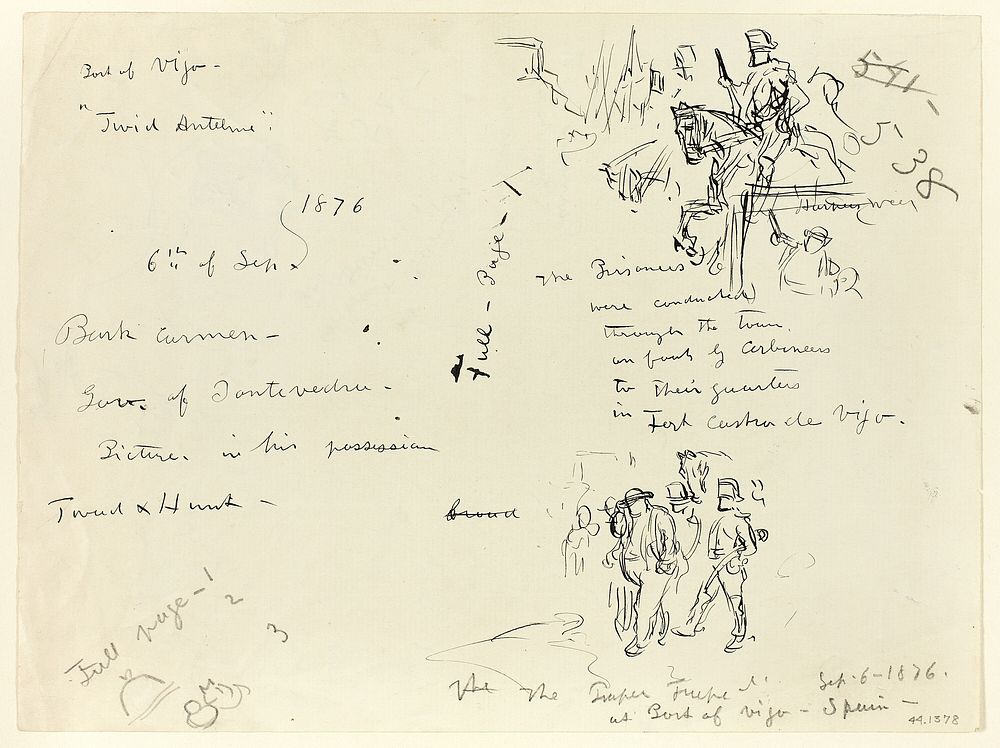 Port of Vigo -
"Twid Antelme".
1876
6th of Sep.
Bark Carmen -
Gov. of Pontevedra -
Picture. in his possession
Tweed & Hunt -
Full page - 1
2
3
Full - Page - 1
541 -
5 - 38
The Prisoners
were conducted
through the town.
on foot by Carboneers
to their quarters
in Fort Castro de Vigo.
broad
The The
Sep. 6 - 1876.
at Port of Vigo - Spain -
44.1378